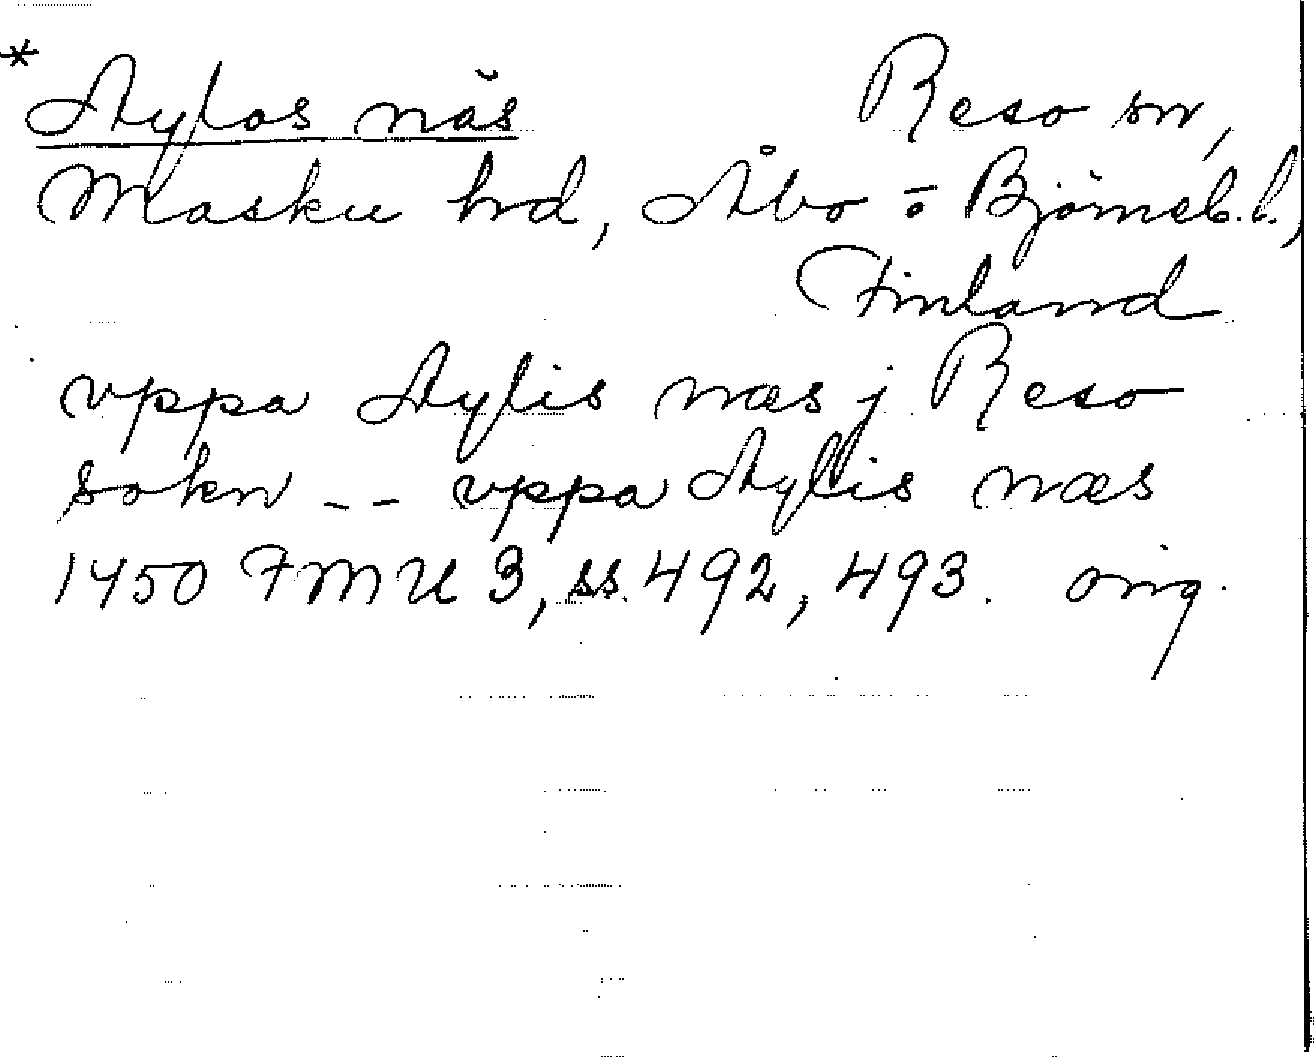 * Aylos näs Reso sn,
Masku hd, Åbo o Björneb. l.,
Finland
vppa Aylis næs j Reso
sokn -- vppa Aylis næs
1450 FMU 3, ss. 492, 493. orig.